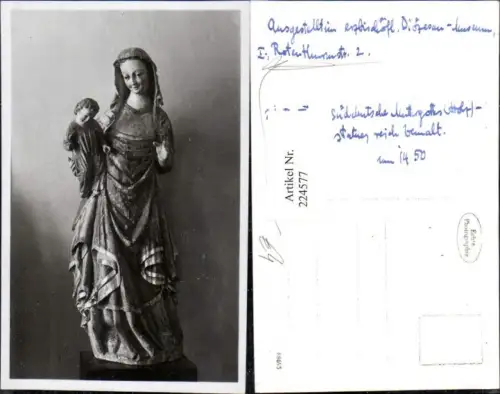 Ausgestellt im erzbischöfl. Diözesan-Museum,
I., Rotenthurmstr. 2.
süddeutsche Muttergottes (Holz)-
statue, reich bemalt.
um 1450
Artikel Nr.
224577
Echte
Photographie